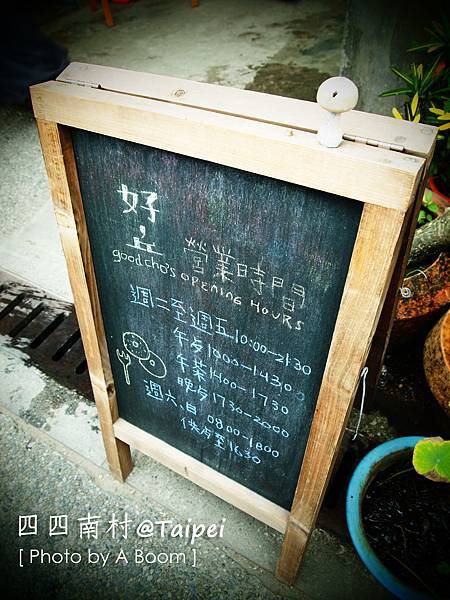 好丘
營業時間
goodcho's OPENING HOURS
週二至週五10:00-21:30
午夕1100-1430
午茶1400-1730
晚夕1730-2000
週六、日 0800-1800
供夕至1630
四四南村@Taipei
[ Photo by A Boom ]